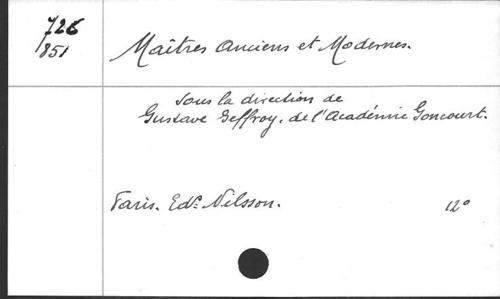 726
851
Maîtres Anciens et Modernes.
Sous la direction de
Gustave Geffroy, de l'Académie Goncourt.
Paris. Edn: Nilsson.
12º